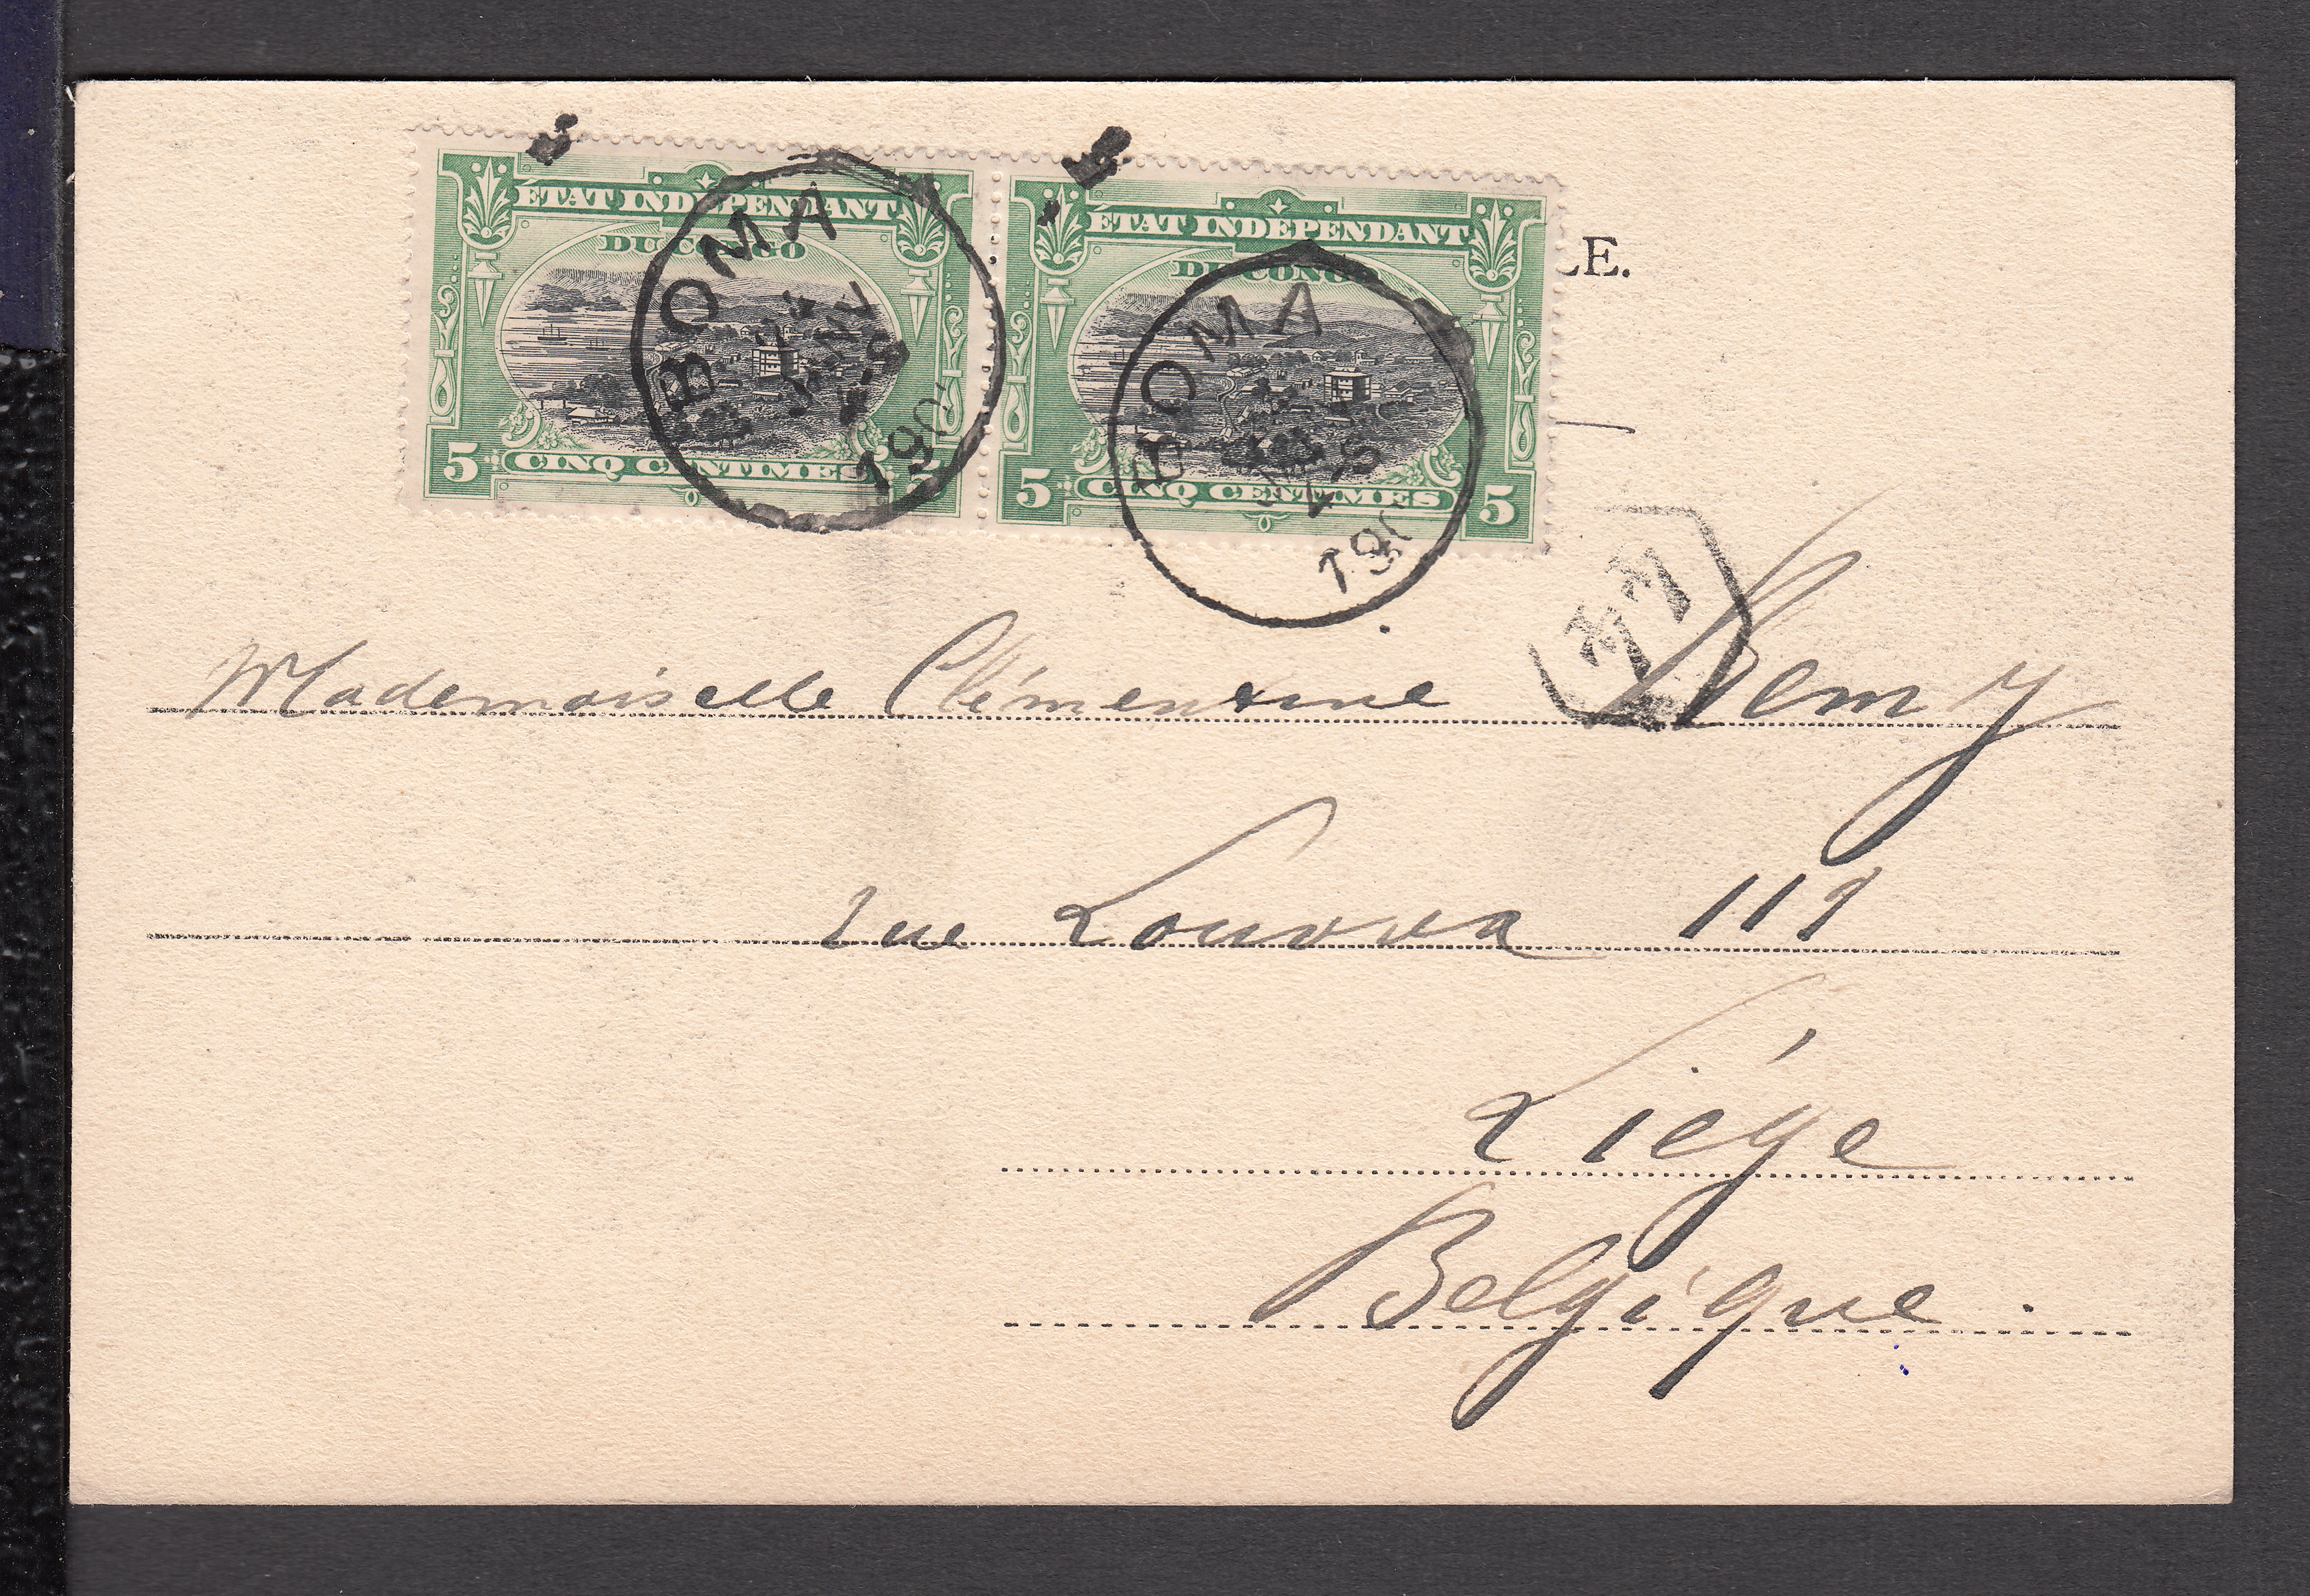 ÉTAT INDÉPENDANT
DU CONGO
5 CINQ CENTIMES 5
ÉTAT INDÉPENDANT
DU CONGO
5 CINQ CENTIMES 5
BOMA
BOMA
E.
Mademoiselle Clémentine Remy
rue Louvrex 111
Liége
Belgique.